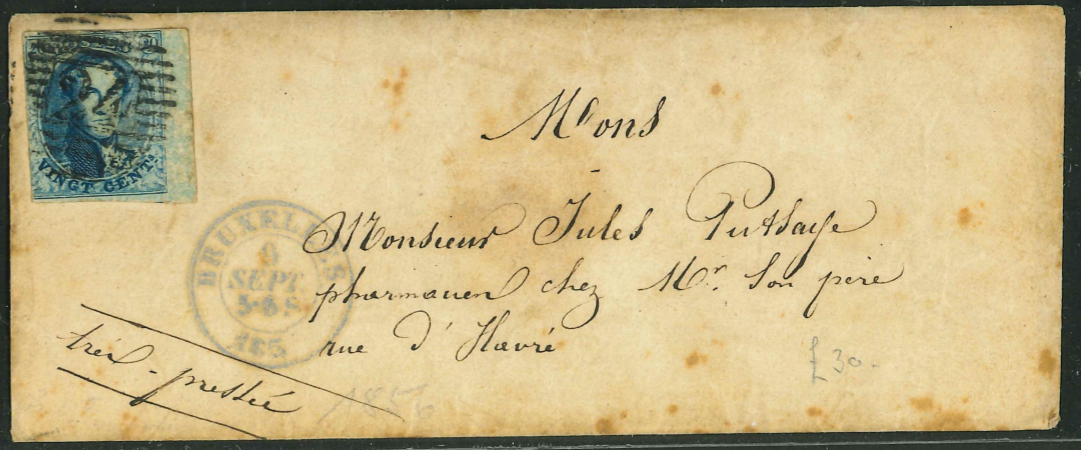 24
VINGT CENTS
Mons
Monsieur Jules Putsage
pharmacien chez Mr. son père
rue d'Havré
BRUXELLES
9
SEPT.
185
très-pressée
1856
£30.